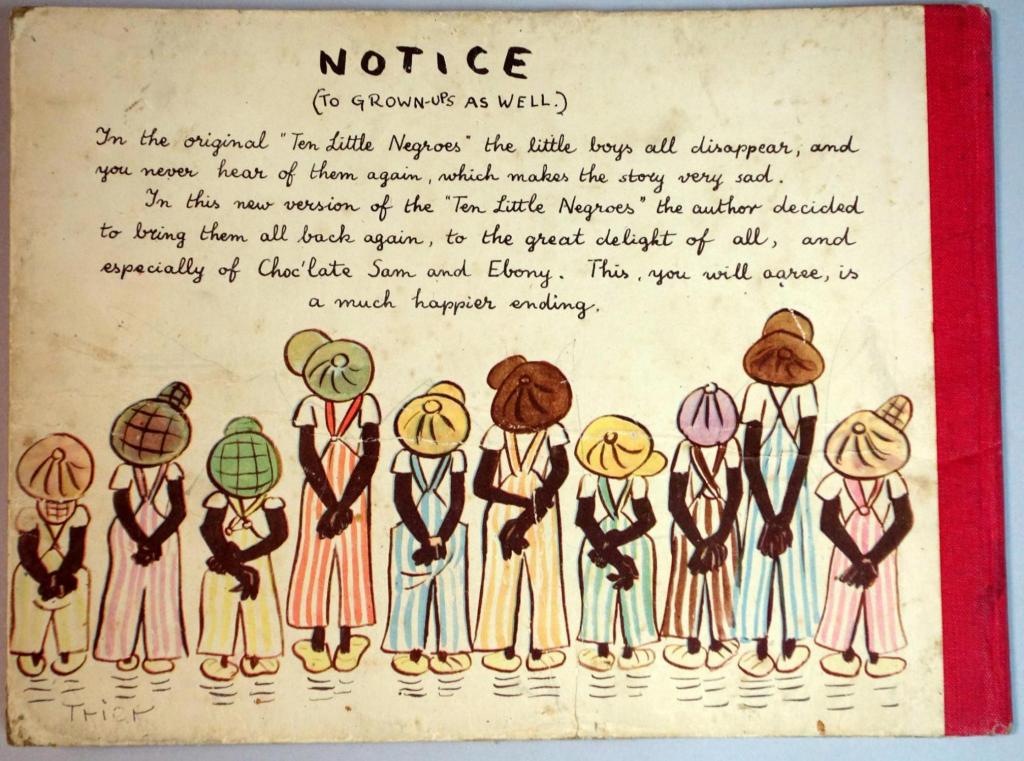 NOTICE
(TO GROWN-UPS AS WELL.)
In the original "Ten Little Negroes" the little boys all disappear, and
you never hear of them again, which makes the story very sad.
In this new version of the "Ten Little Negroes" the author decided
to bring them all back again, to the great delight of all, and
especially of Choc'late Sam and Ebony. This, you will agree, is
a much happier ending.